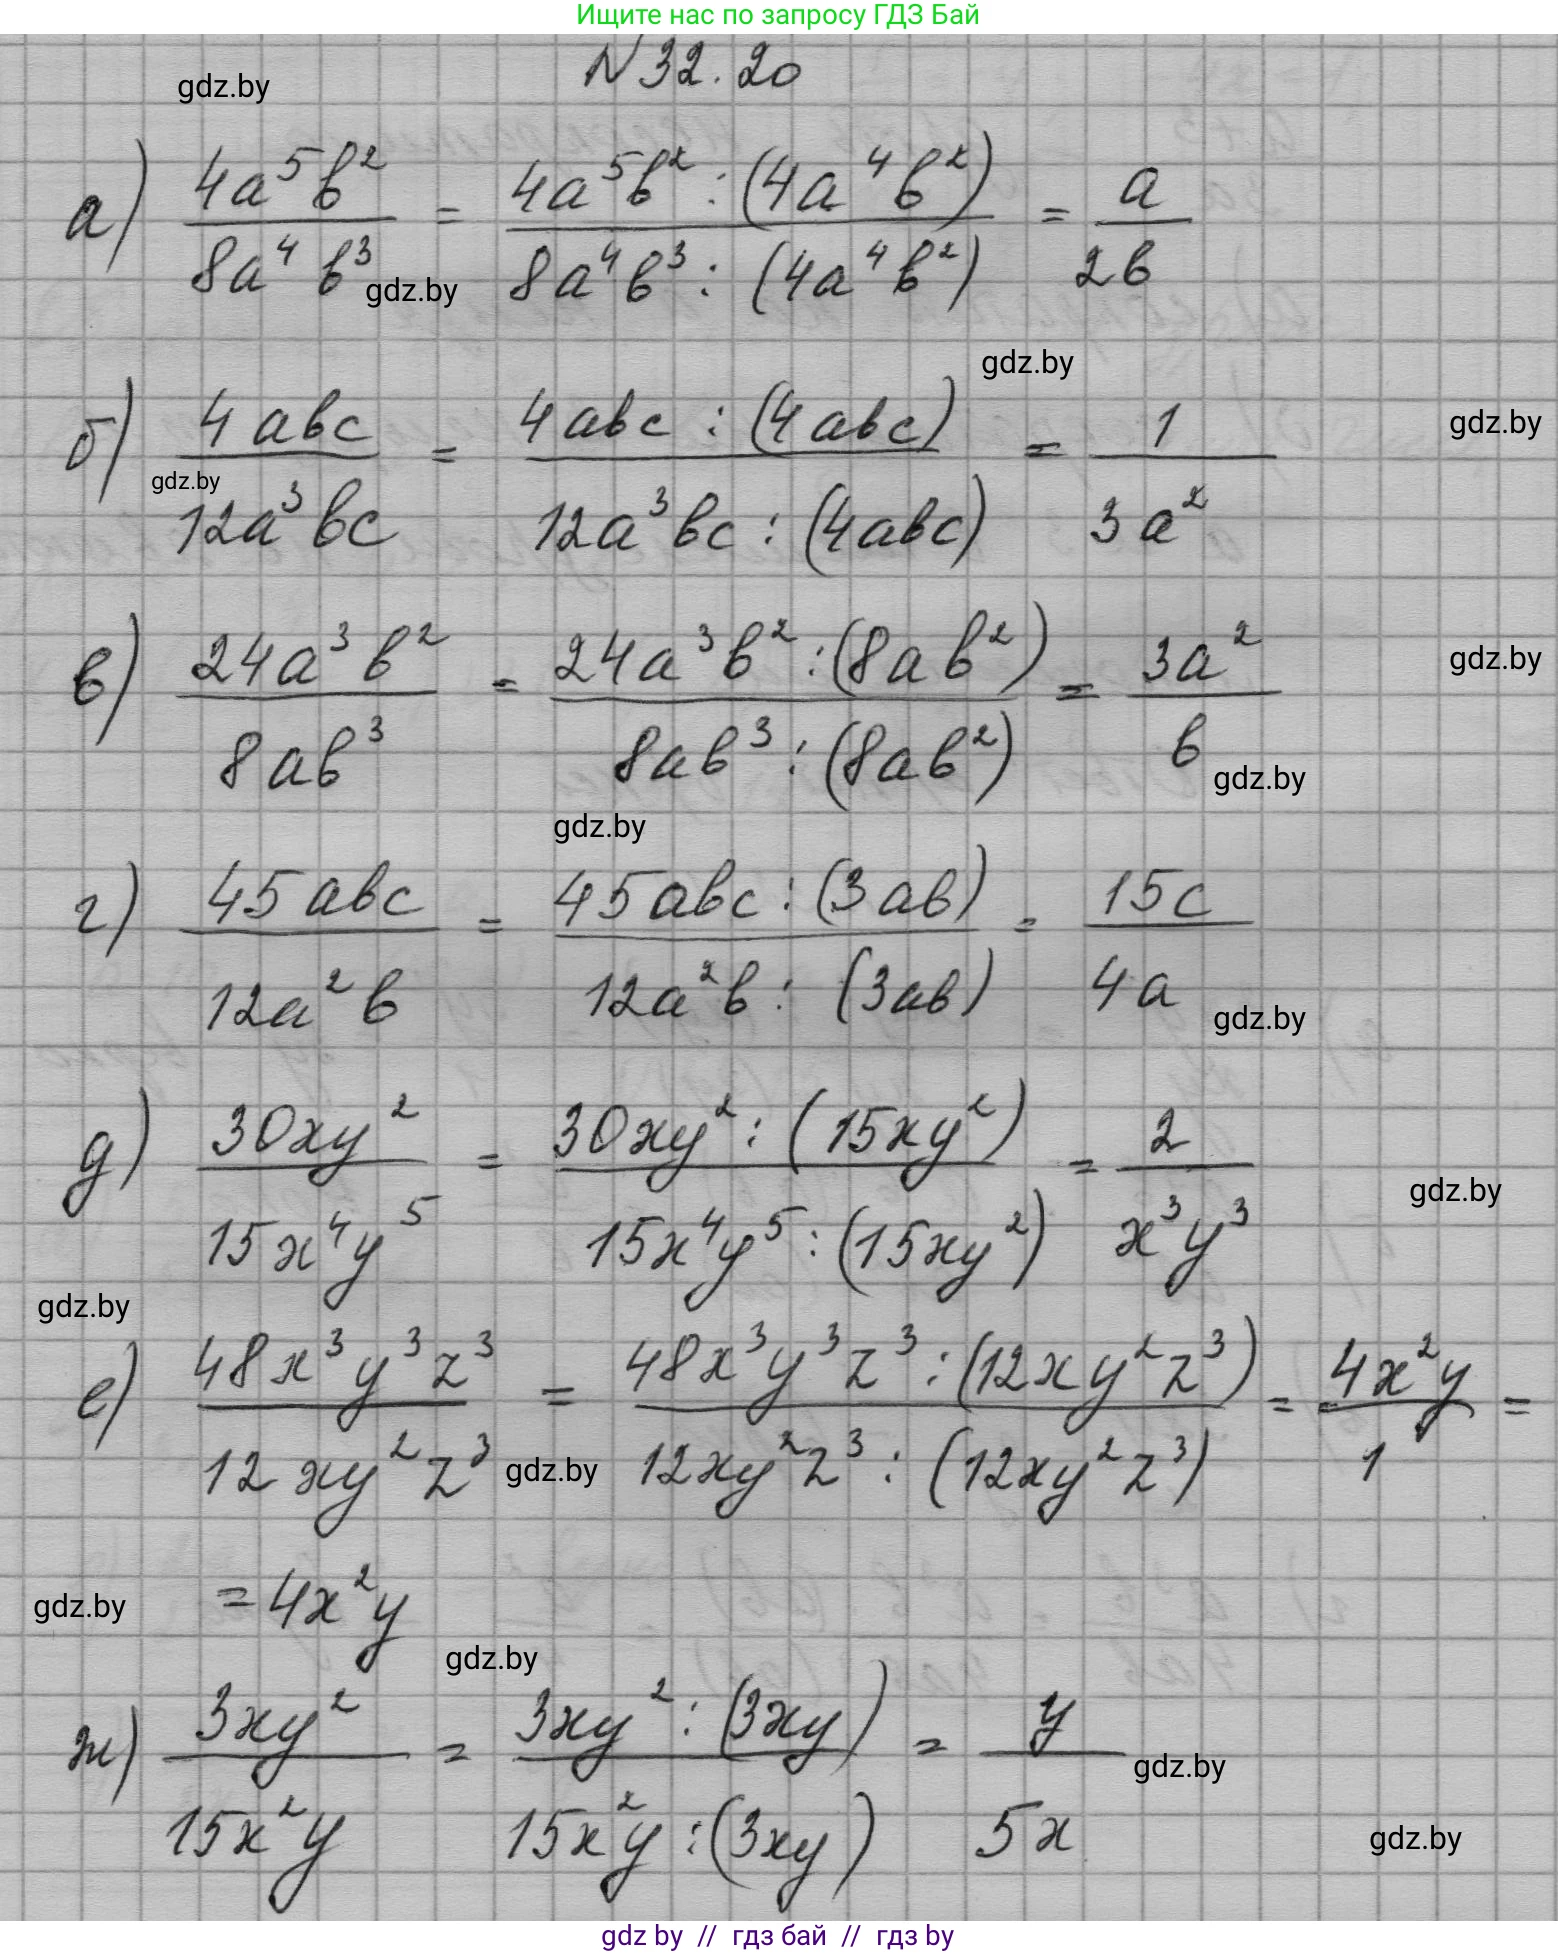 Ищите нас по запросу ГДЗ Бай
N 32.20
gdz.by
а) 4a⁵b² / 8a⁴b³ = 4a⁵b² : (4a⁴b²) / 8a⁴b³ : (4a⁴b²) = a / 2b
gdz.by
gdz.by
б) 4abc / 12a³bc = 4abc : (4abc) / 12a³bc : (4abc) = 1 / 3a²
gdz.by
gdz.by
в) 24a³b² / 8ab³ = 24a³b² : (8ab²) / 8ab³ : (8ab²) = 3a² / b
gdz.by
gdz.by
gdz.by
г) 45abc / 12a²b = 45abc : (3ab) / 12a²b : (3ab) = 15c / 4a
gdz.by
д) 30xy² / 15x⁴y⁵ = 30xy² : (15xy²) / 15x⁴y⁵ : (15xy²) = 2 / x³y³
gdz.by
gdz.by
е) 48x³y³z³ / 12xy²z³ = 48x³y³z³ : (12xy²z³) / 12xy²z³ : (12xy²z³) = 4x²y / 1 =
gdz.by
= 4x²y
gdz.by
gdz.by
ж) 3xy² / 15x²y = 3xy² : (3xy) / 15x²y : (3xy) = y / 5x
gdz.by
gdz.by
gdz by // гдз бай // гдз by